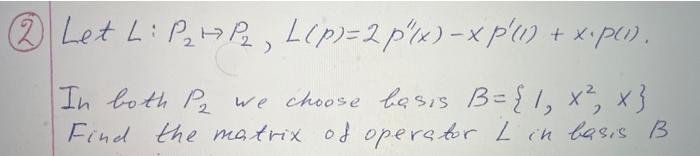 ② Let L: P₂ ↦ P₂, L(p) = 2 p'(x) − x p'(1) + x·p(1).
In both P₂ we choose basis B = { 1, x², x }
Find the matrix of operator L in basis B